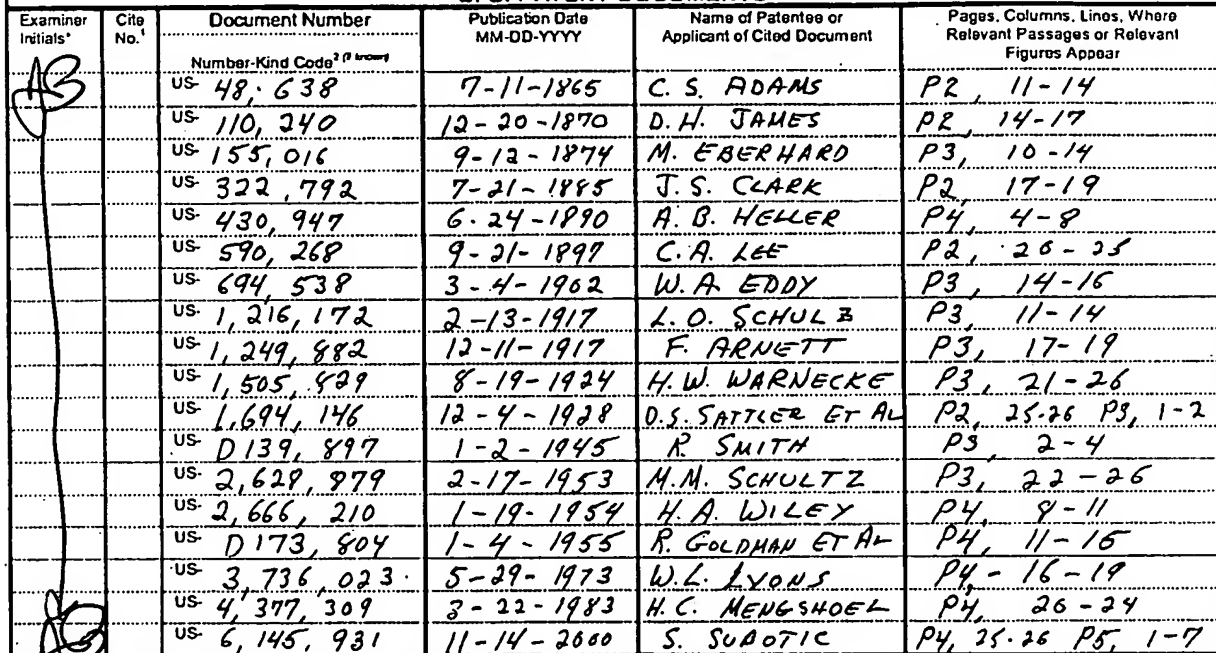 Examiner Initials* Cite No.¹ Document Number Publication Date MM-DD-YYYY Name of Patentee or Applicant of Cited Document Pages, Columns, Lines, Where Relevant Passages or Relevant Figures Appear
Number-Kind Code² (if known)
US- 48,638 7-11-1865 C. S. ADAMS P2, 11-14
US- 110,240 12-20-1870 D. H. JAMES P2, 14-17
US- 155,016 9-12-1874 M. EBERHARD P3, 10-14
US- 322,792 7-21-1885 J. S. CLARK P2, 17-19
US- 430,947 6-24-1890 A. B. HELLER P4, 4-8
US- 590,268 9-21-1897 C. A. LEE P2, 20-25
US- 694,538 3-4-1902 W. A. EDDY P3, 14-16
US- 1,216,172 2-13-1917 L. O. SCHULZ P3, 11-14
US- 1,249,882 12-11-1917 F. ARNETT P3, 17-19
US- 1,505,829 8-19-1924 H. W. WARNECKE P3, 21-26
US- 1,694,146 12-4-1928 D. S. SATTLER ET AL P2, 25-26 P3, 1-2
US- D139,897 1-2-1945 R. SMITH P3 2-4
US- 2,628,879 2-17-1953 M. M. SCHULTZ P3, 22-26
US- 2,666,210 1-19-1954 H. A. WILEY P4, 8-11
US- D173,804 1-4-1955 R. GOLDMAN ET AL P4, 11-15
US- 3,736,023 5-29-1973 W. L. LYONS P4, - 16-19
US- 4,377,309 3-22-1983 H. C. MENGSHOEL P4, 20-24
US- 6,145,931 11-14-2000 S. SUBOTIC P4, 25-26 P5, 1-7